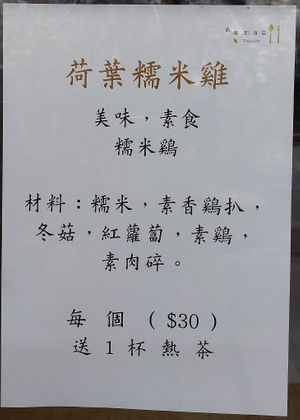 荷葉糯米雞
美味，素食
糯米鷄
材料：糯米，素香鷄扒，
冬菇，紅蘿蔔，素鷄，
素肉碎。
每個（$30）
送1杯熱茶